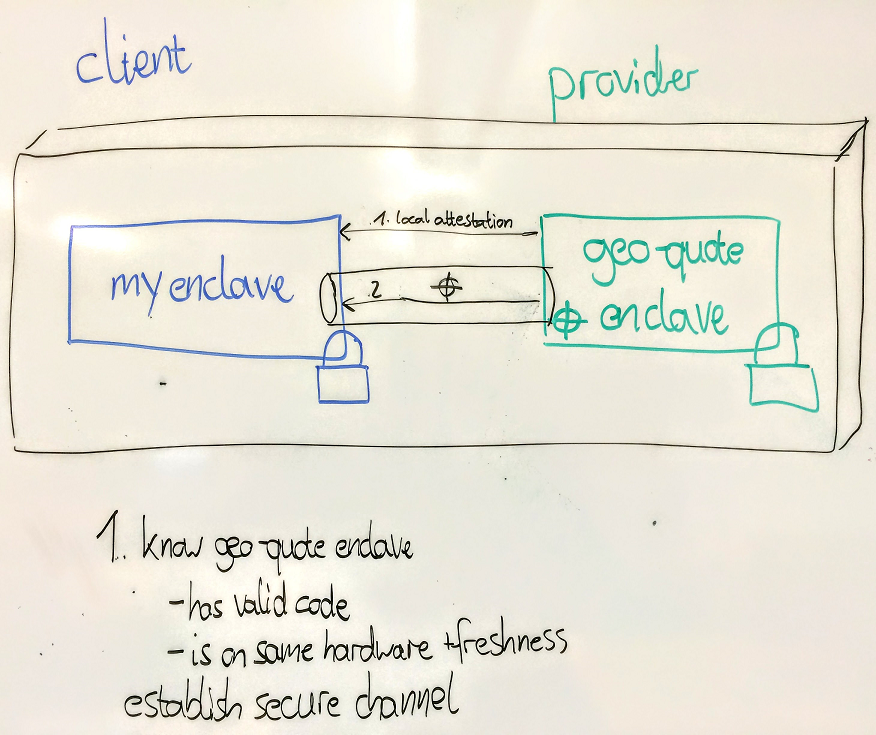 client
provider
1. local attestation
my enclave
2
geo-quote
enclave
1. know geo-quote enclave
- has valid code
- is on same hardware + freshness
establish secure channel